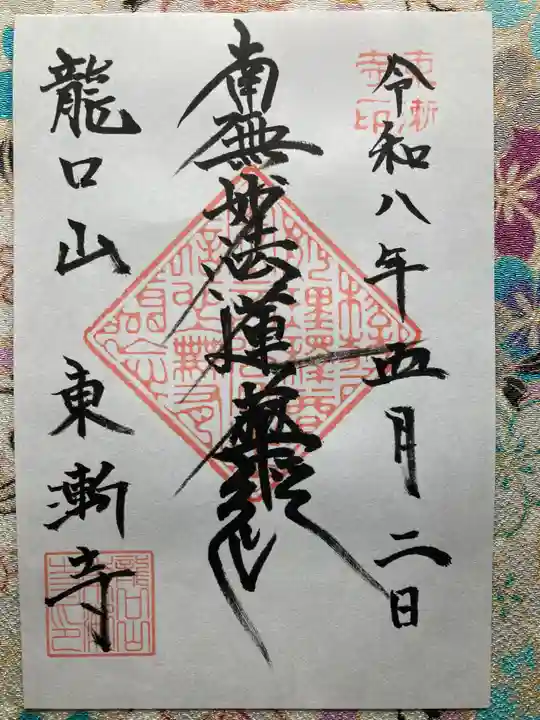 令和八年五月二日
東漸寺印
南無妙法蓮華経
龍口山 東漸寺